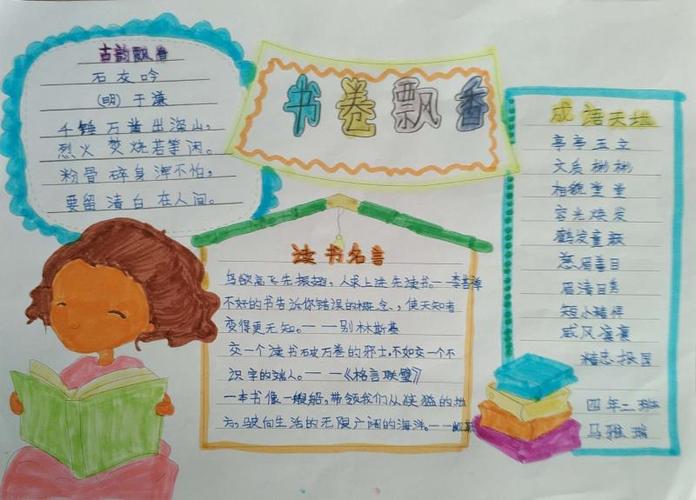 古韵飘香
石灰吟
(明)于谦
千锤万凿出深山,
烈火焚烧若等闲。
粉骨碎身浑不怕,
要留清白在人间。
书卷飘香
读书名言
鸟欲高飞先振翅,人求上进先读书。——李若禅
不好的书告诉你错误的概念,使无知者
变得更无知。——别林斯基
交一个读书破万卷的邪士,不如交一个不
识字的端人。——《格言联璧》
一本书像一艘船,带领我们从狭隘的地
方,驶向生活的无限广阔的海洋。——
成语天地
亭亭玉立
文质彬彬
相貌堂堂
容光焕发
鹤发童颜
慈眉善目
眉清目秀
短小精悍
威风凛凛
四年二班
马雅瑞